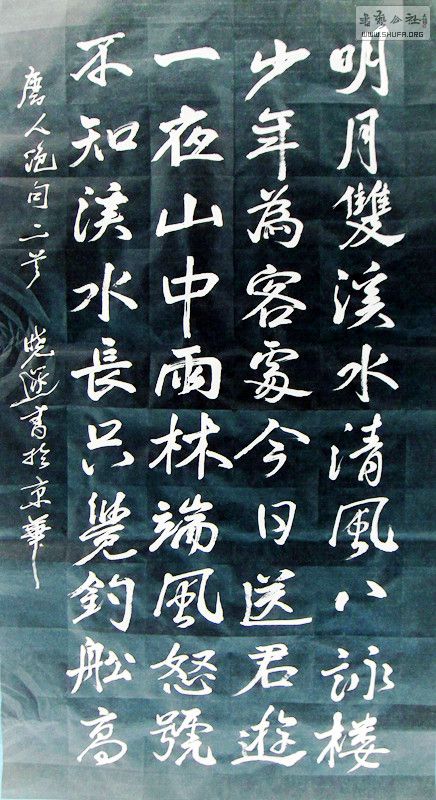 明月雙溪水清風八詠楼
少年為客處今日送君遊
一夜山中雨林端風怒號
不知溪水長只覺釣船高
唐人绝句二首 晓遊書於京華
書藝公社
WWW.SHUFA.ORG